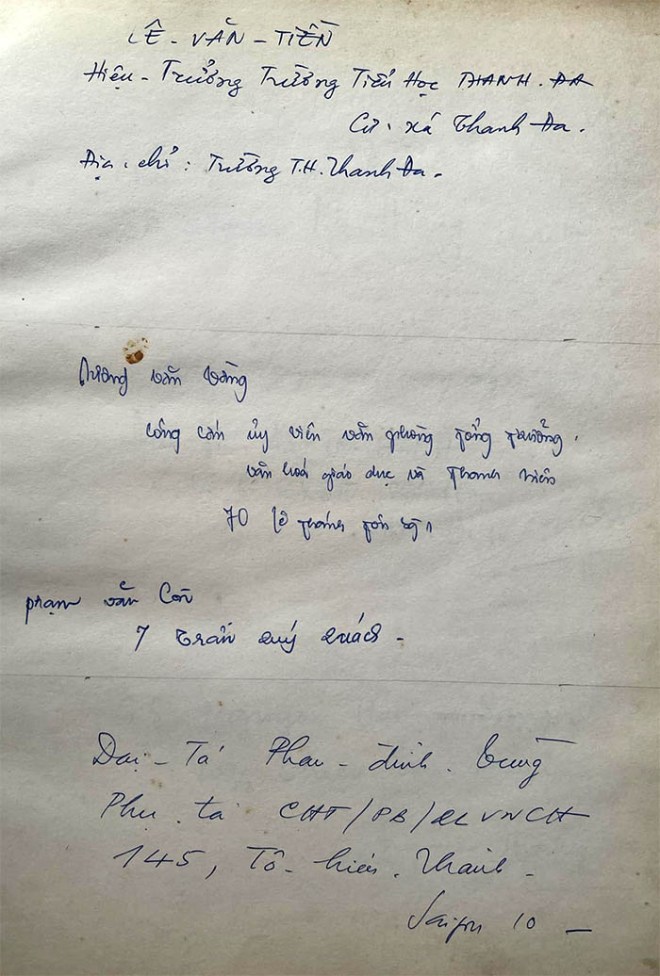 LÊ - VĂN - TIỀN
Hiệu - Trưởng Trường Tiểu Học THANH - ĐA
Cư xá Thanh Đa.
Địa chỉ: Trường T.H. Thanh Đa.
Lương văn Vàng
Công cán ủy viên văn phòng tổng trưởng,
văn hoá giáo dục và thanh niên
70 lê thánh tôn
phạm văn Còn
7 Trần Quý Quách -
Đại - Tá Phan - đình . Tùng
Phụ tá CHT/PB/QLVNCH
145, Tô hiến Thành -
Saigon 10 -